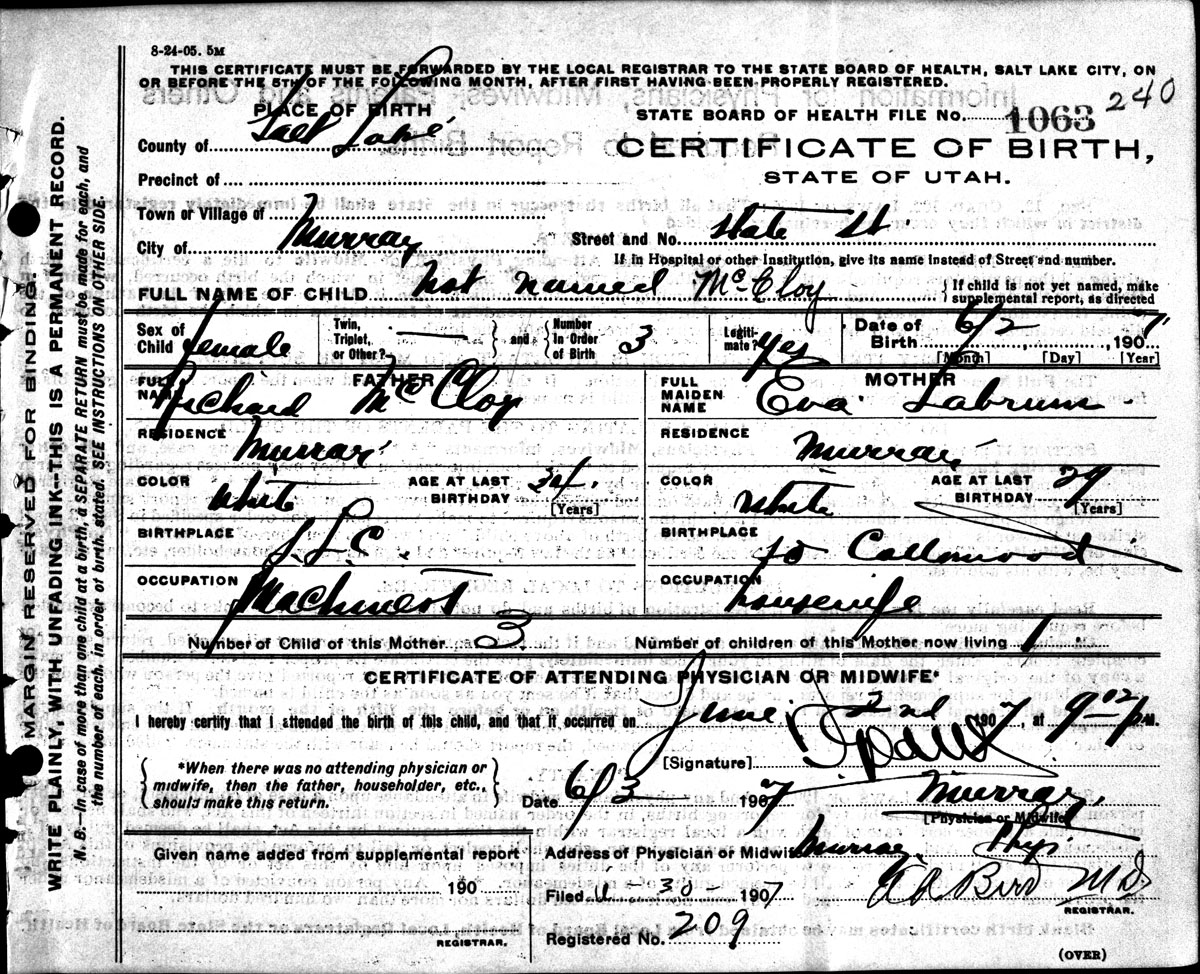 8-24-05. 5M
THIS CERTIFICATE MUST BE FORWARDED BY THE LOCAL REGISTRAR TO THE STATE BOARD OF HEALTH, SALT LAKE CITY, ON
OR BEFORE THE 5TH OF THE FOLLOWING MONTH, AFTER FIRST HAVING BEEN PROPERLY REGISTERED.
240
PLACE OF BIRTH
STATE BOARD OF HEALTH FILE No. 1063
County of Salt Lake
CERTIFICATE OF BIRTH,
STATE OF UTAH.
Precinct of
Town or Village of
City of Murray
Street and No. State St
If in Hospital or other Institution, give its name instead of Street and number.
FULL NAME OF CHILD Not named McCloy
If child is not yet named, make
supplemental report, as directed
Sex of Child female
Twin, Triplet, or Other? —
and
Number In Order of Birth 3
Legiti-mate? yes
Date of Birth 6/2, 1907
[Month] [Day] [Year]
FATHER
FULL NAME Richard McCloy
RESIDENCE Murray
COLOR White
AGE AT LAST BIRTHDAY 34.
[Years]
BIRTHPLACE S.L.C.
OCCUPATION Machinest
MOTHER
FULL MAIDEN NAME Eva Labrum
RESIDENCE Murray
COLOR White
AGE AT LAST BIRTHDAY 29
[Years]
BIRTHPLACE So Cottonwood
OCCUPATION housewife
Number of Child of this Mother 3
Number of children of this Mother now living 1
CERTIFICATE OF ATTENDING PHYSICIAN OR MIDWIFE*
I hereby certify that I attended the birth of this child, and that it occurred on June 2nd 1907, at 9 P.M.
[Signature]
*When there was no attending physician or
midwife, then the father, householder, etc.,
should make this return.
Date 6/3 1907
Murray,
[Physician or Midwife]
Given name added from supplemental report
190
REGISTRAR.
Address of Physician or Midwife Murray Phys
Filed 1907
REGISTRAR.
Registered No. 209
(OVER)
MARGIN RESERVED FOR BINDING.
WRITE PLAINLY, WITH UNFADING INK—THIS IS A PERMANENT RECORD.
N. B.—In case of more than one child at a birth, a SEPARATE RETURN must be made for each, and
the number of each, in order of birth, stated. SEE INSTRUCTIONS ON OTHER SIDE.